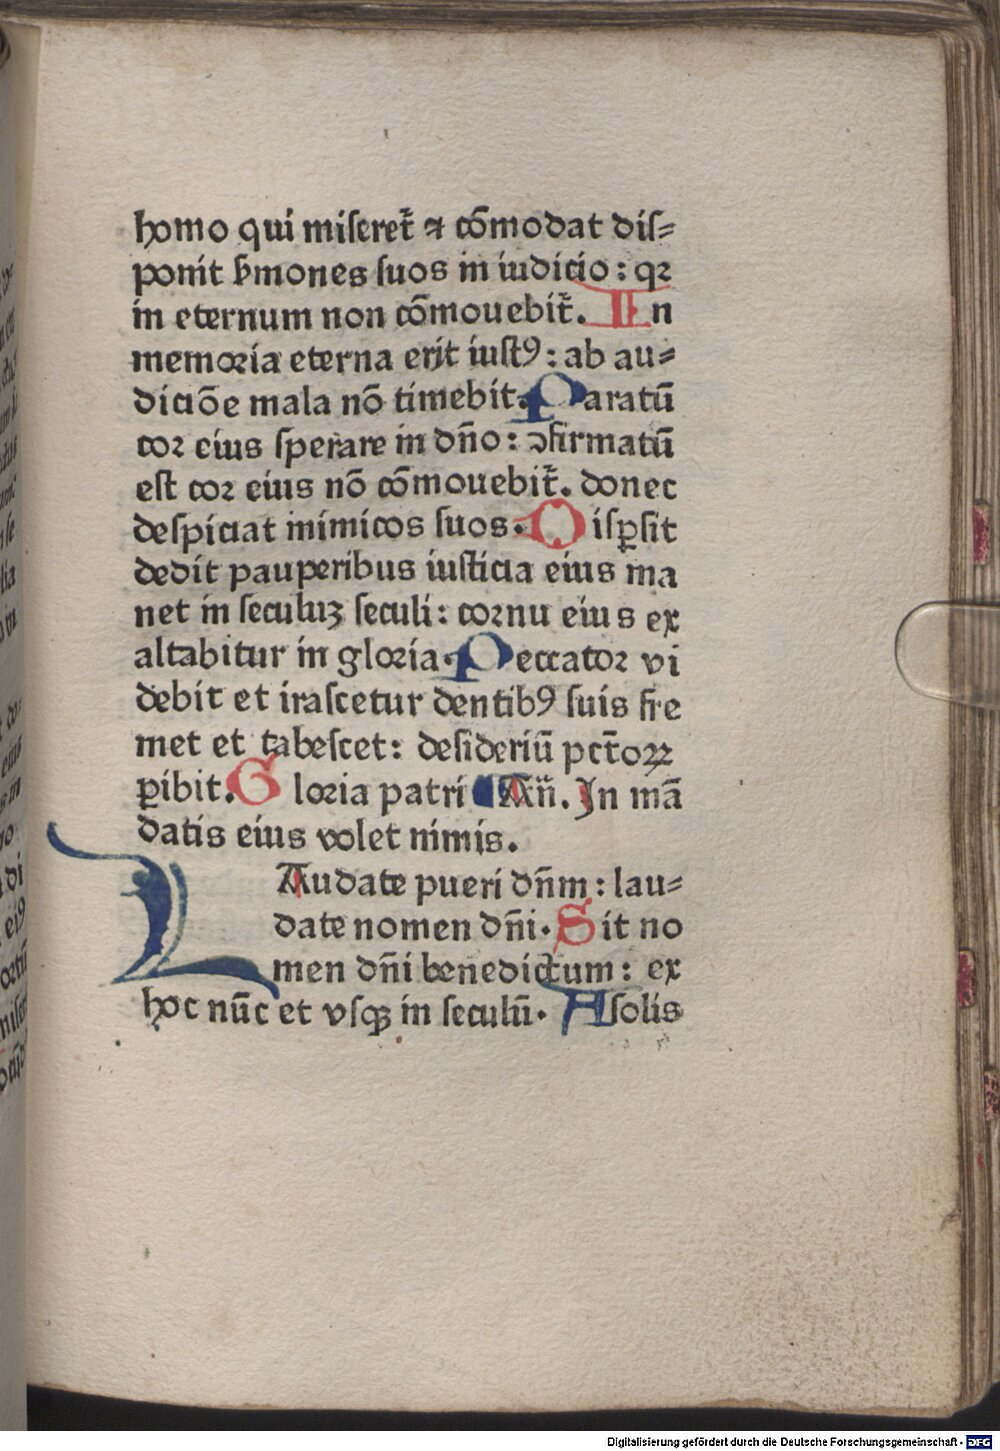 homo qui miseret᷑ ⁊ cōmodat dis⸗
ponit ẜmones suos in iudicio : qꝛ
in eternum non cōmouebit᷑. In
memoria eterna erit iustꝰ : ab au⸗
diciōe mala nō timebit. Paratū
cor eius sperare in dn̄o : ↄfirmatū
est cor eius nō cōmouebit᷑. donec
despiciat inimicos suos. Disꝑsit
dedit pauperibus iusticia eius ma
net in seculuꝫ seculi : cornu eius ex
altabitur in gloria. Peccator vi
debit et irascetur dentibꝰ suis fre
met et tabescet : desideriū pct̄oꝝ
ꝑibit. Gloria patri An̄. In mā
datis eius volet nimis.
LAudate pueri dn̄m : lau⸗
date nomen dn̄i. Sit no
men dn̄i benedictum : ex
hoc nūc et vsqꝫ in seculū. A solis
Digitalisierung gefördert durch die Deutsche Forschungsgemeinschaft - DFG